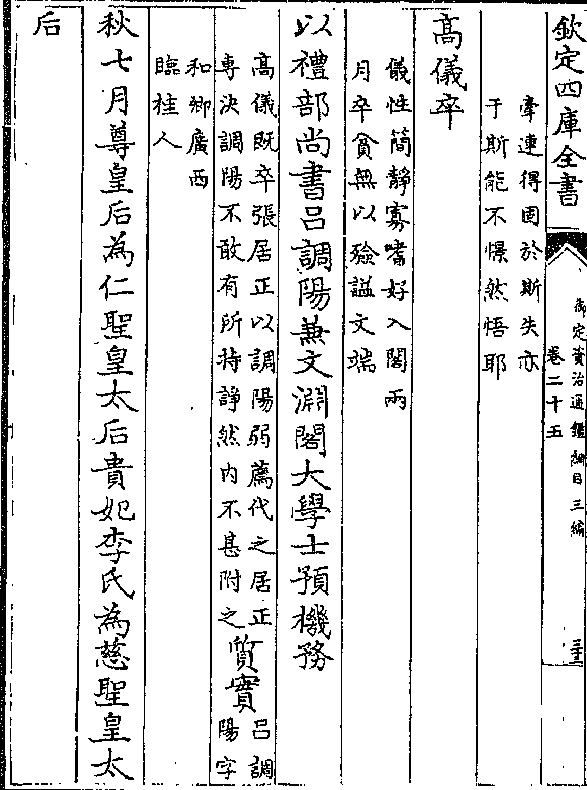 欽定四庫全書
御定資治通鑑綱目三編
卷二十五
牽連得固於斯失亦
于斯能不憬然悟耶
高儀卒
儀性簡靜寡嗜好入閣兩
月卒貧無以殮諡文端
以禮部尚書呂調陽兼文淵閣大學士預機務
高儀既卒張居正以調陽弱薦代之居正
專決調陽不敢有所持諍然内不甚附之
質實
呂調
陽字
和卿廣西
臨桂人
秋七月尊皇后為仁聖皇太后貴妃李氏為慈聖皇太
后